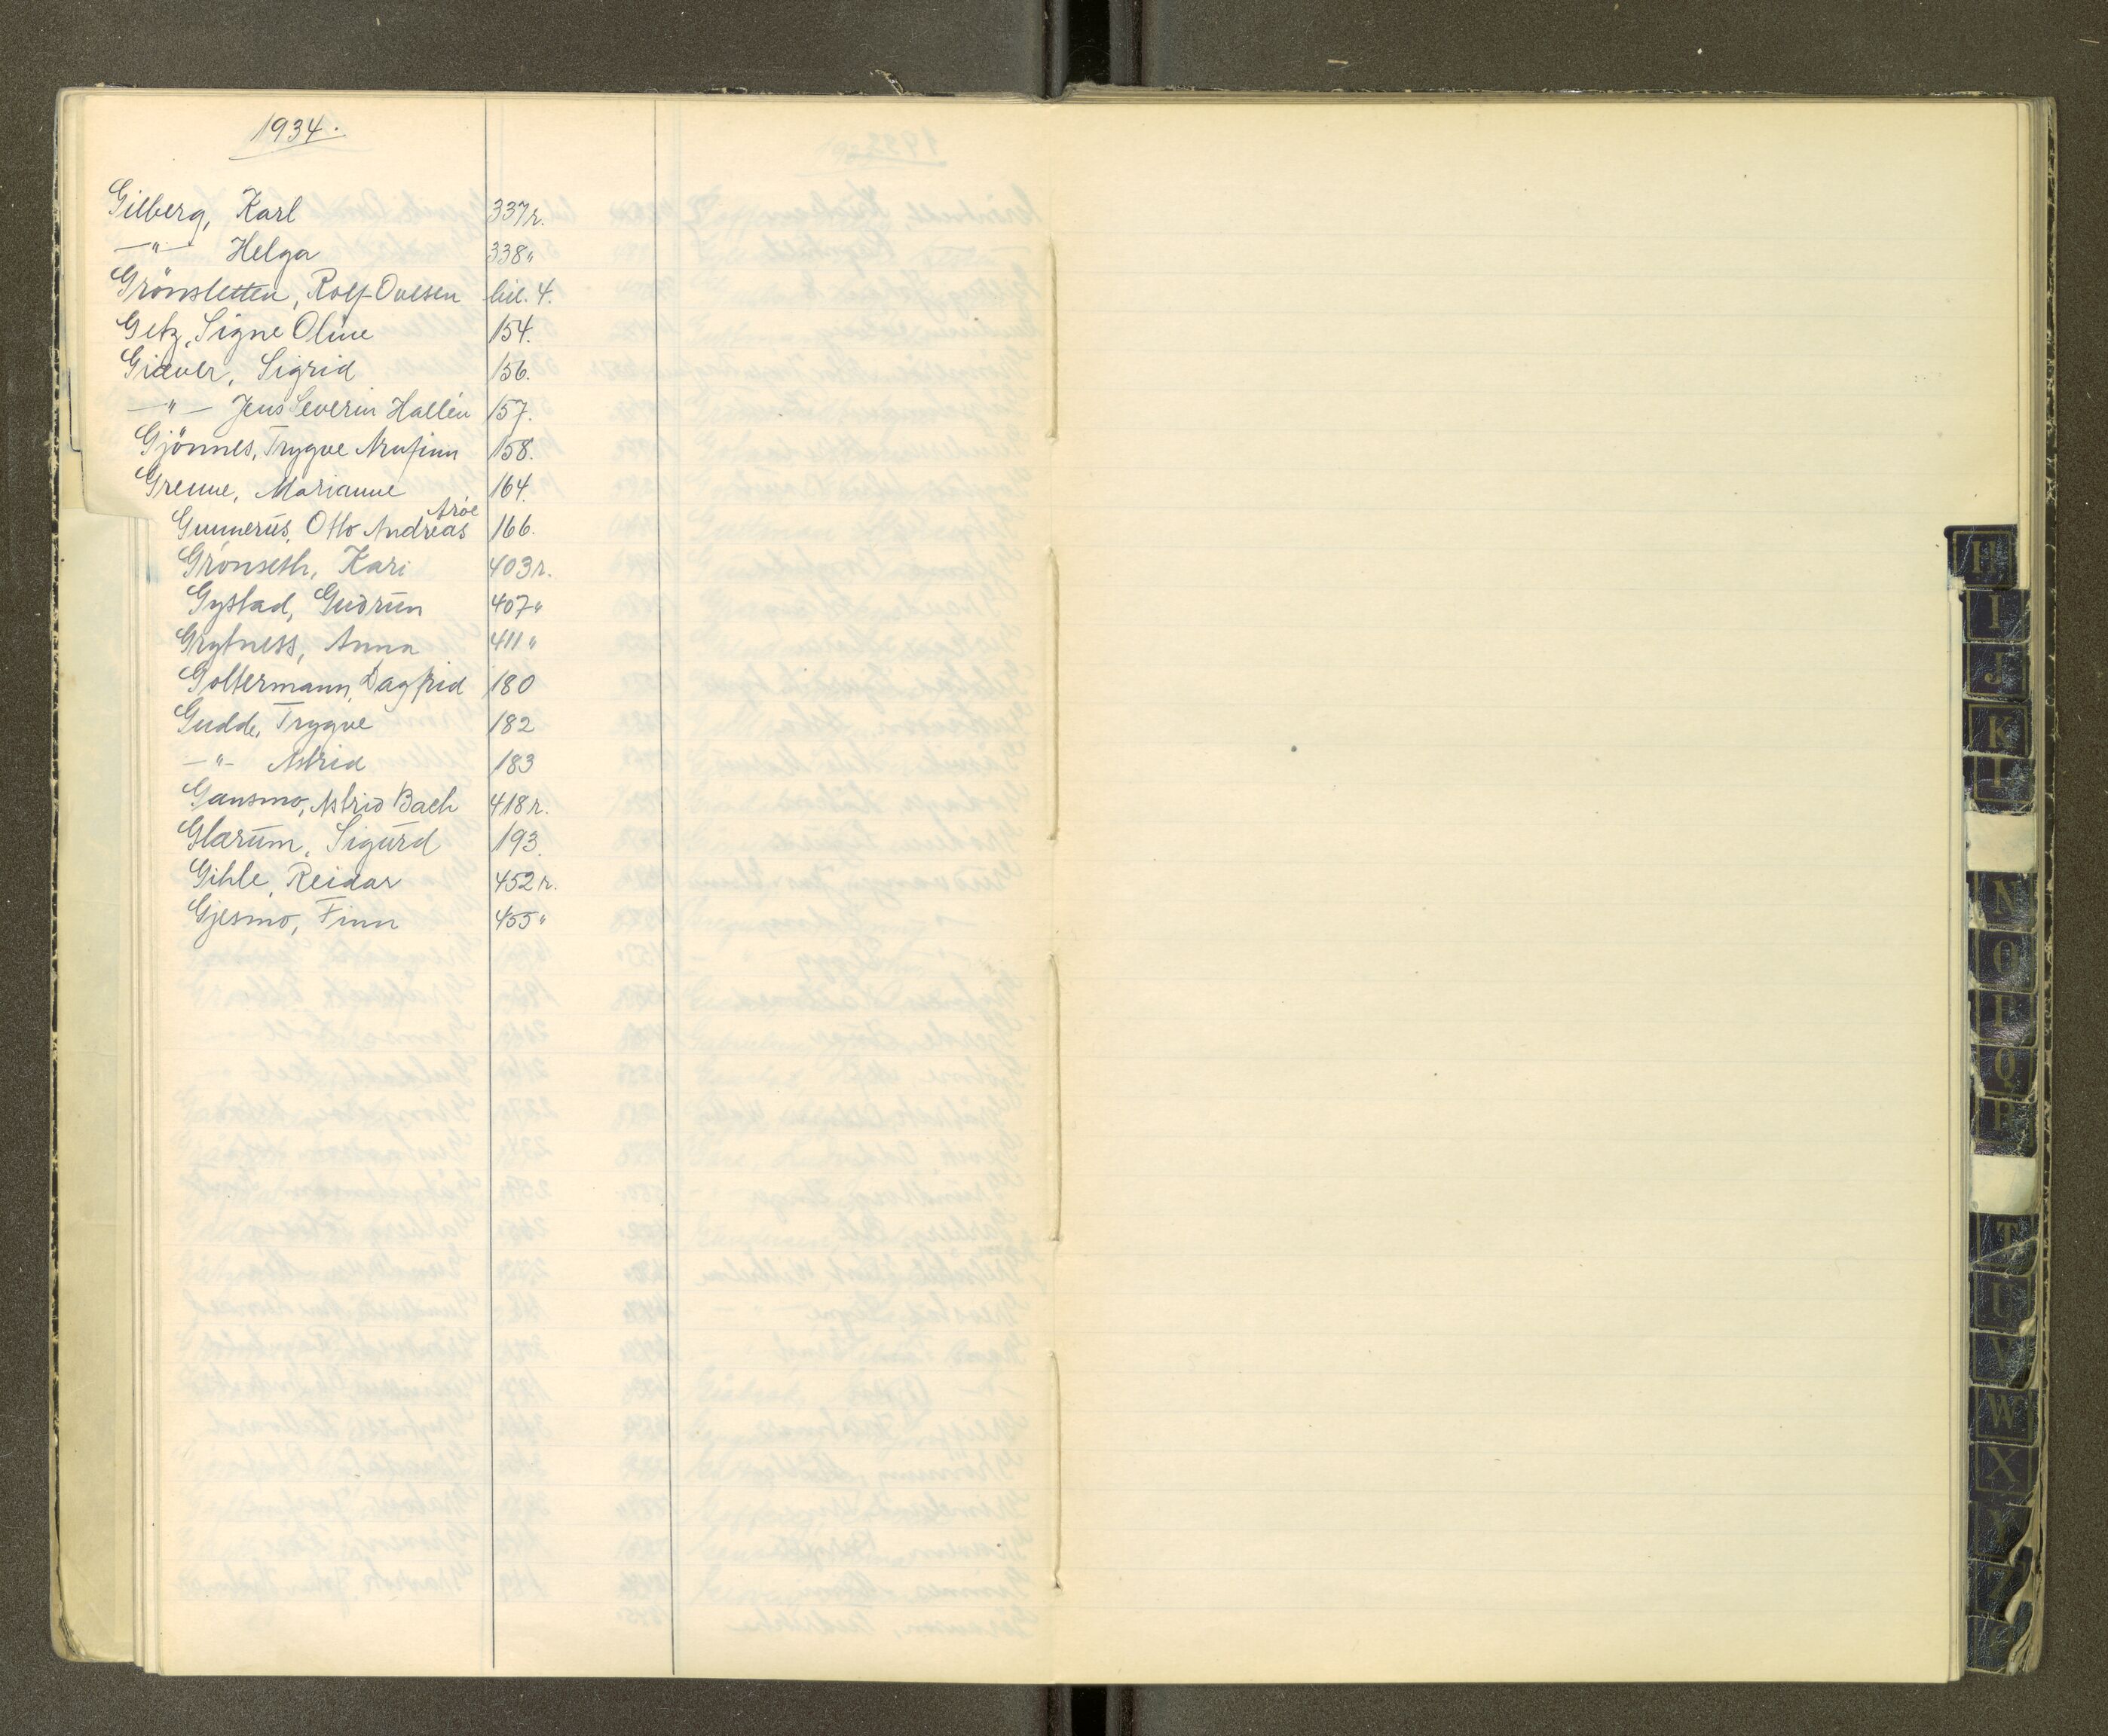 1934.
Gilberg, Karl 337 r.
—"— Helga 338 "
Grönsletten, Rolf Ovesen bil. 4.
Getz, Signe Oline 154.
Giæver, Sigrid 156.
—"— Jens Severin Hallén 157.
Gjönnes, Trygve Arnfinn 158.
Grenne, Marianne 164.
Aröe
Gunnerus, Otto Andreas 166.
Grönseth, Kari 403 r.
Gystad, Gudrun 407 "
Grytness, Anna 411 "
Goltermann, Dagfrid 180
Gudde, Trygve 182
—"— Astrid 183
Gausmo, Astrid Bach 418 r.
Glærum, Sigurd 193.
Gihle, Reidar 452 r.
Gjesmo, Finn 455 "
H
I
J
K
L
N
O
P
Q
R
T
U
V
W
X
Y
Z